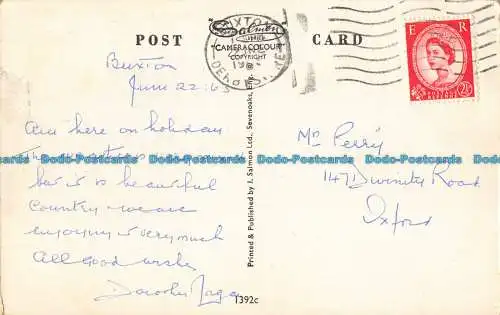 POST CARD
Salmon
SERIES
"CAMERACOLOUR"
COPYRIGHT
BUXTON
E R
2½D
Buxton
June 22.63
Am here on holiday
but it is beautiful
Country we are
enjoying it very much
All good wishes
Dorothy
Mr Perry
147 Divinity Road
Oxford
Printed & Published by J. Salmon Ltd., Sevenoaks, Eng.
1392c
Dodo-Postcards Dodo-Postcards Dodo-Postcards Dodo-Postcards Dodo-Postcards